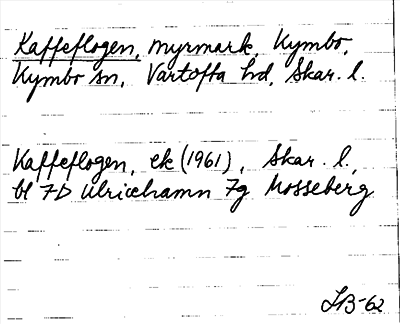 Kaffeflogen, myrmark, Kymbo,
Kymbo sn, Vartofta hd, Skar. l.
Kaffeflogen, ek (1961), Skar. l.,
bl 7D Ulricehamn 7g Mosseberg
LB-62